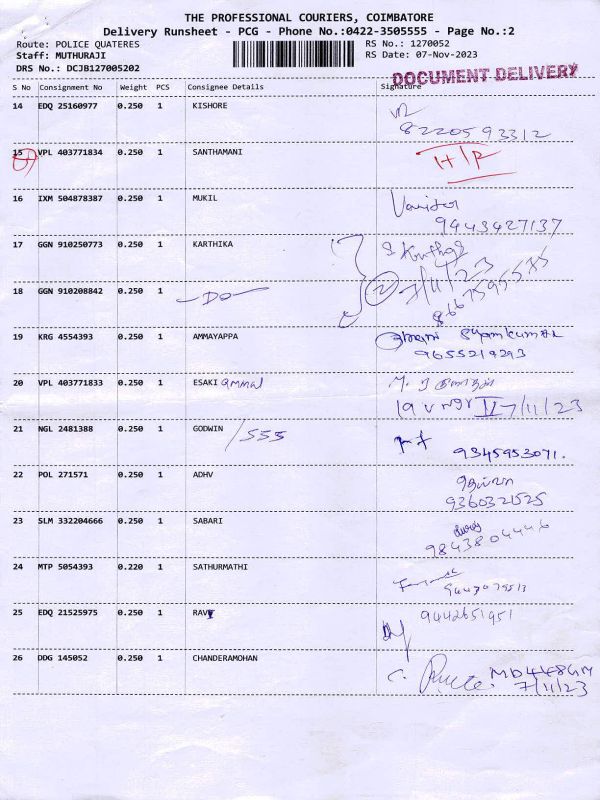 THE PROFESSIONAL COURIERS, COIMBATORE
Delivery Runsheet - PCG - Phone No.:0422-3505555 - Page No.:2
Route: POLICE QUATERES RS No.: 1270052
Staff: MUTHURAJI RS Date: 07-Nov-2023
DRS No.: DCJB127005202
DOCUMENT DELIVERY
S No Consignment No Weight PCS Consignee Details Signature
14 EDQ 25160977 0.250 1 KISHORE
8220593312
15 VPL 403771834 0.250 1 SANTHAMANI
16 IXM 504878387 0.250 1 MUKIL
9443427137
17 GGN 910250773 0.250 1 KARTHIKA
7/11/23
18 GGN 910208842 0.250 1 -Do- 2
8667595575
19 KRG 4554393 0.250 1 AMMAYAPPA
Shyamkumar
9655219293
20 VPL 403771833 0.250 1 ESAKI ammal
7/11/23
21 NGL 2481388 0.250 1 GODWIN /555
9345953071.
22 POL 271571 0.250 1 ADHV
9360321525
23 SLM 332204666 0.250 1 SABARI
9843804446
24 MTP 5054393 0.220 1 SATHURMATHI
25 EDQ 21525975 0.250 1 RAVI
9442651951
26 DDG 145052 0.250 1 CHANDERAMOHAN
7/11/23